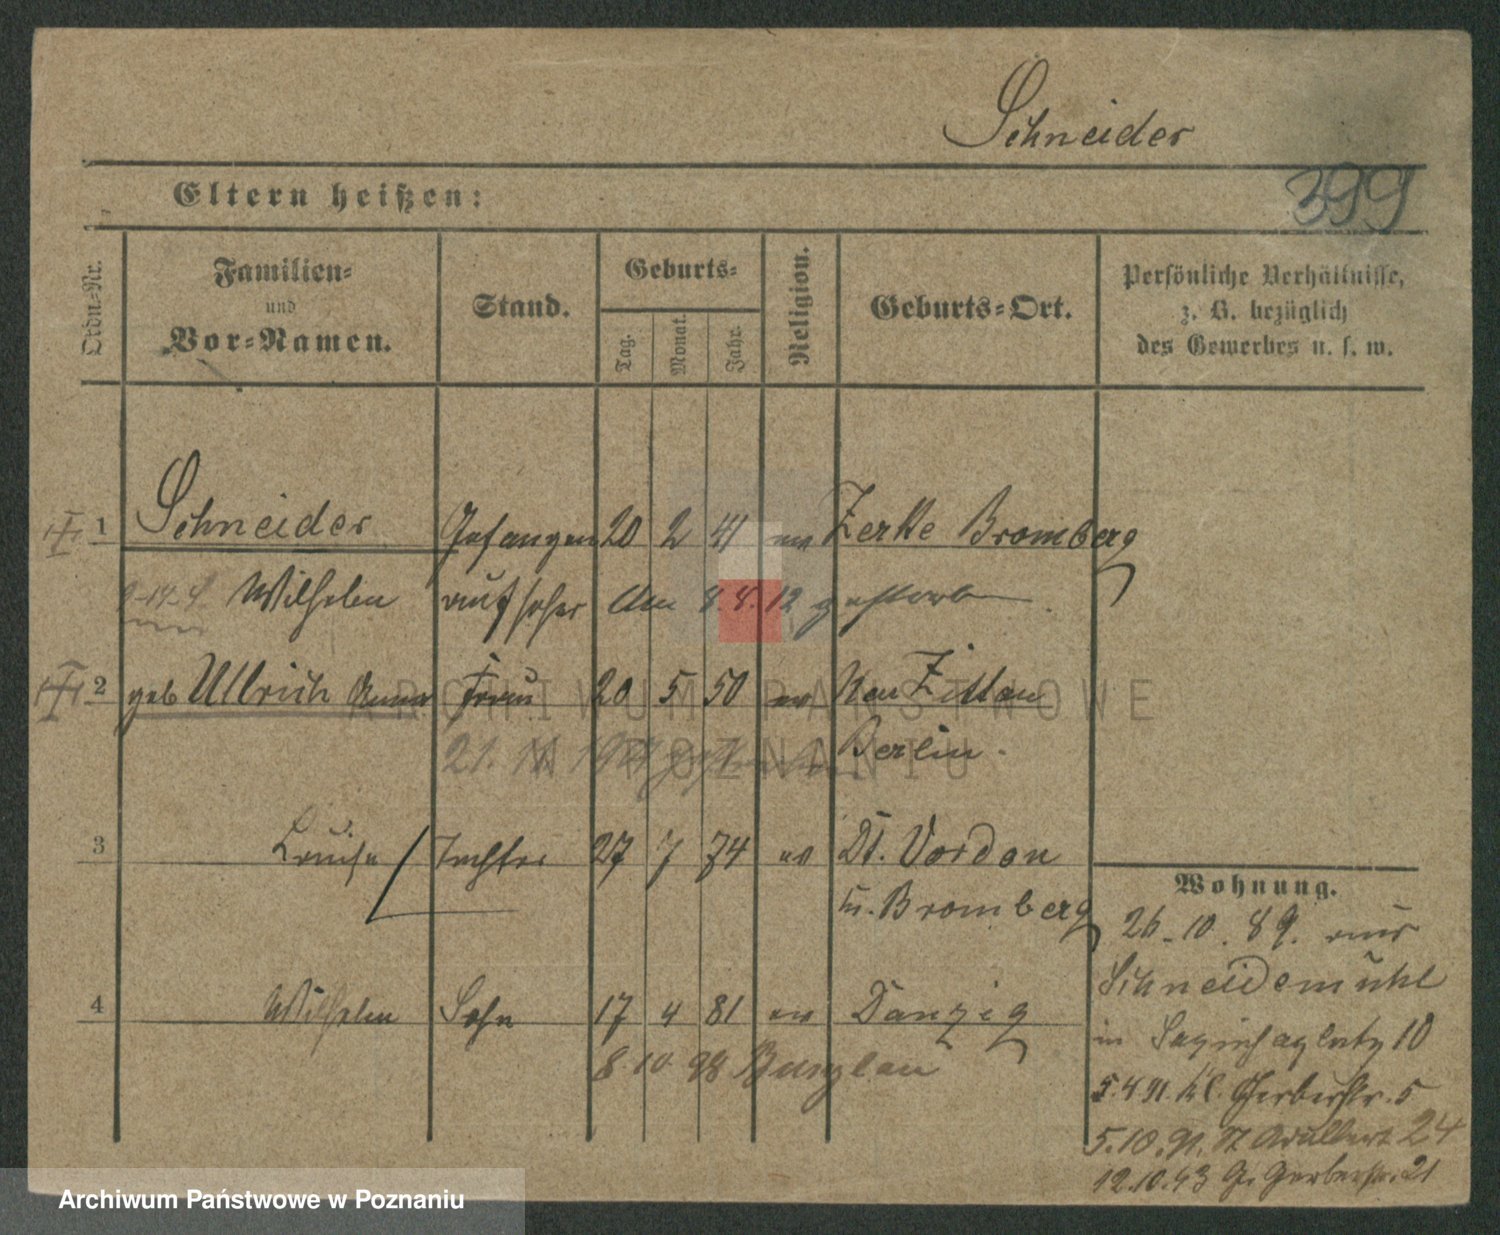 Schneider
399
Eltern heißen:
Ordn=Nr.
Familien=
und
Vor=Namen.
Stand.
Geburts=
Tag.
Monat.
Jahr.
Religion.
Geburts=Ort.
Persönliche Verhältnisse,
z. B. bezüglich
des Gewerbes u. s. w.
1 Schneider Gefangen 20 2 41 ev Bromberg
Wilhelm aufseher Am 8.8.12 gestorben
2 geb Ullrich Anna Frau 20 5 50 ev Neu Zittau
21. gestorben Berlin.
3 Louise Tochter 27 7 74 ev Dt. Vordon
Bromberg
4 Wilhelm Sohn 17 4 81 ev Danzig
8 10 98 Bunzlau
Wohnung.
26.10.89. aus
Schneidemühl
in Sapiehaplatz 10
5.4.91. Kl. Gerberstr. 5
5.10.91. St Adalbert 24
12.10.93 Gr. Gerberstr. 21
ARCHIWUM PAŃSTWOWE
W POZNANIU
Archiwum Państwowe w Poznaniu